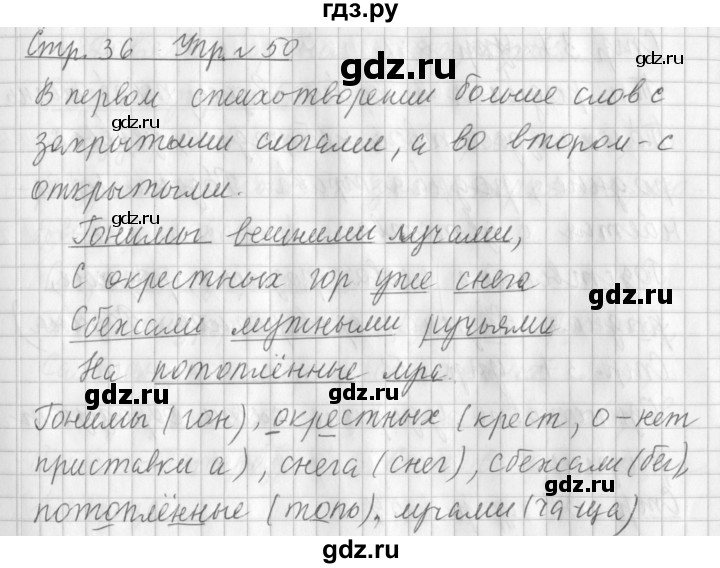 гдз.ру
Стр. 36 Упр № 50
gdz.ru
В первом стихотворении больше слов с
gdz.ru
gdz.ru
закрытыми слогами, а во втором - с
открытыми.
gdz.ru
Гонимы вешними лучами,
gdz.ru
С окрестных гор уже снега
gdz.ru
Сбежали мутными ручьями
На потоплённые луга.
gdz.ru
gdz.ru
Гонимы (гон), окрестных (крест, о - нет
приставки а), снега (снег), сбежали (бег),
gdz.ru
потоплённые (топь), лучами (ча ща)
gdz.ru
gdz.ru